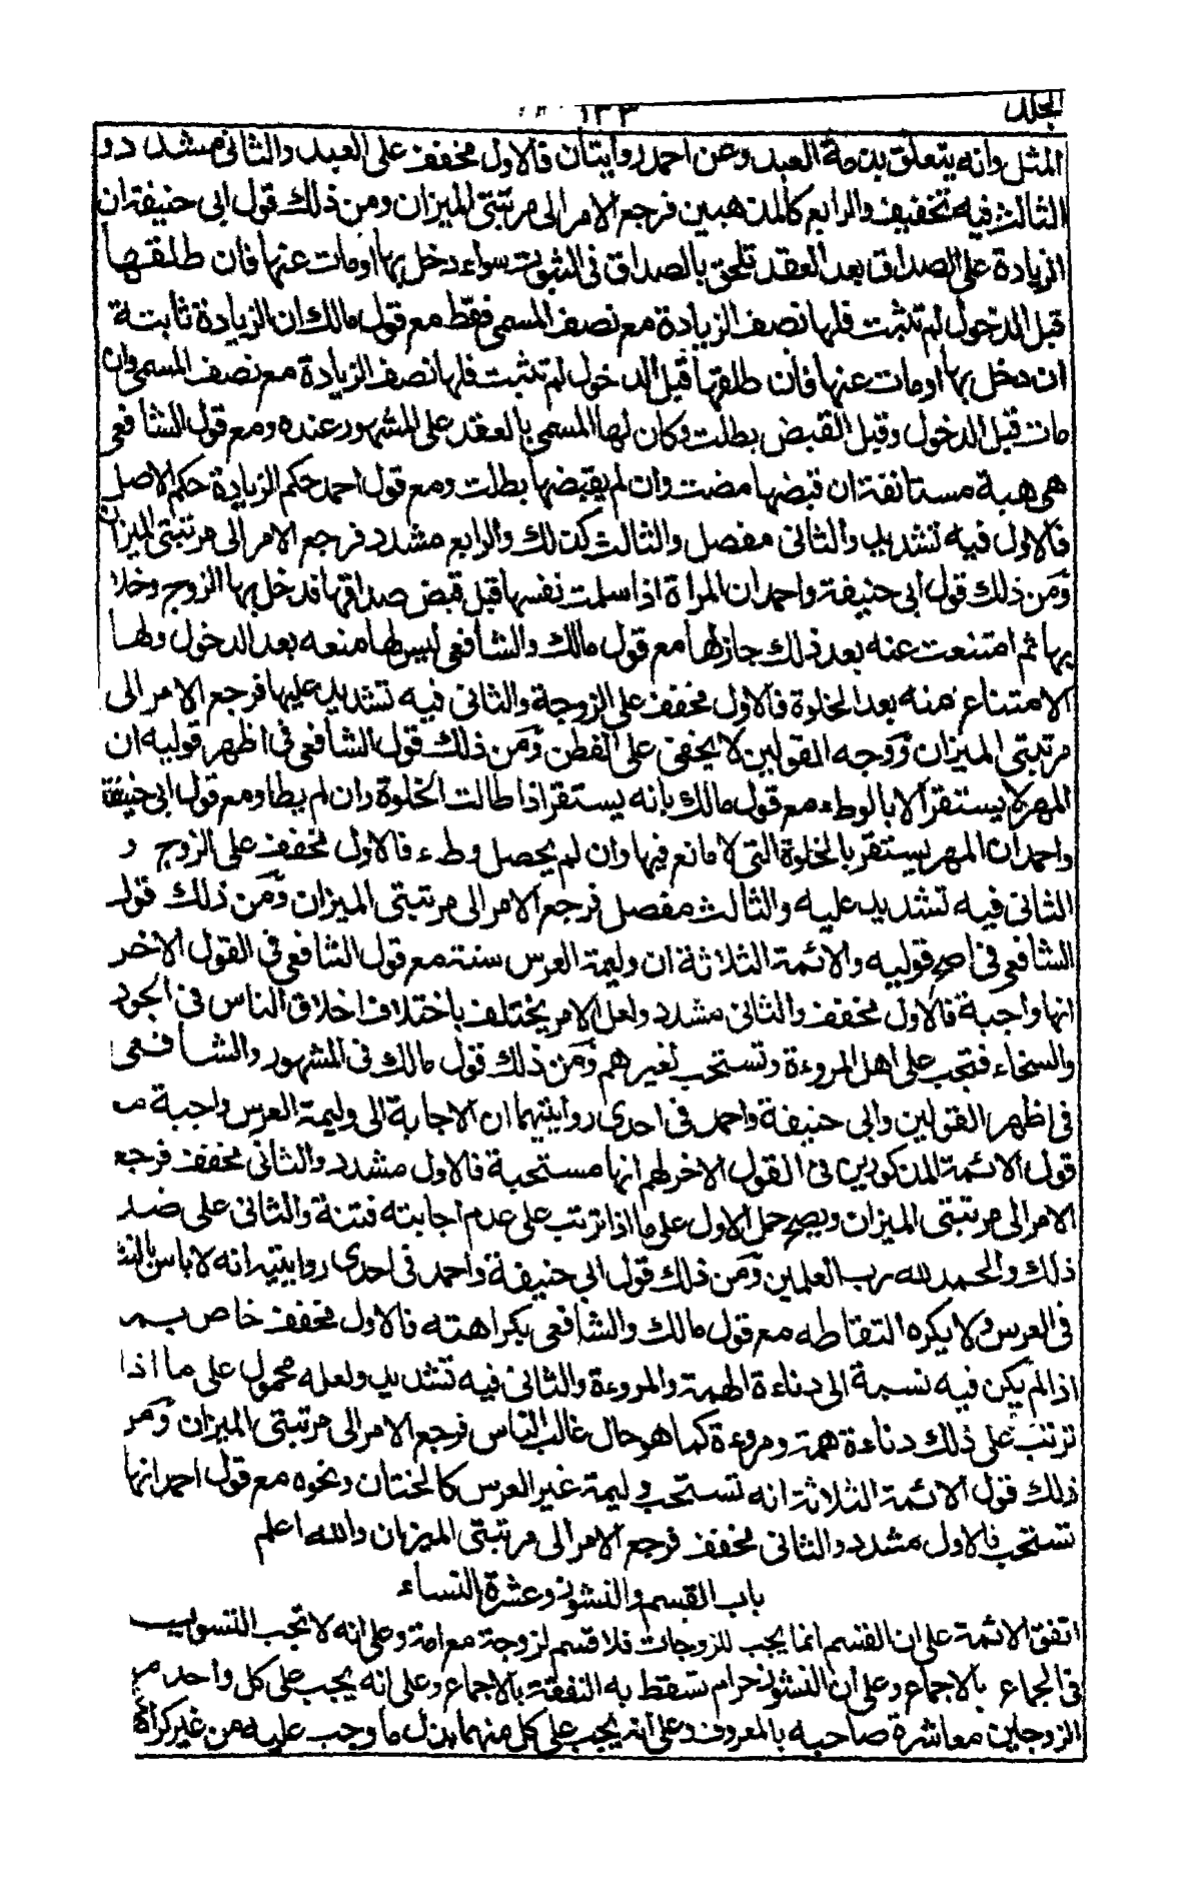 الجلد
١٣٣
المثل وانه يتعلق بذمة العبد وعن احمد روايتان فالاول مخفف على العبد والثانى مشدد و
الثالث فيه تخفيف والرابع كالمذهبين فرجع الامر الى مرتبتى الميزان ومن ذلك قول ابى حنيفة ان
الزيادة على الصداق بعد العقد تلحق بالصداق فى الثبوت سواء دخل بها او مات عنها فان طلقها
قبل الدخول لم تثبت فلها نصف الزيادة مع نصف المسمى فقط مع قول مالك ان الزيادة ثابتة
ان دخل بها او مات عنها فان طلقها قبل الدخول لم تثبت فلها نصف الزيادة مع نصف المسمى وان
مات قبل الدخول وقبل القبض بطلت وكان لها المسمى بالعقد على المشهور عنده ومع قول الشافعى
هى هبة مستانفة ان قبضها مضت وان لم يقبضها بطلت ومع قول احمد حكم الزيادة حكم الاصل
فالاول فيه تشديد والثانى مفصل والثالث كذلك والرابع مشدد فرجع الامر الى مرتبتى الميزان
ومن ذلك قول ابى حنيفة واحمد ان المراة اذا سلمت نفسها قبل قبض صداقها فدخل بها الزوج وخلا
بها ثم امتنعت عنه بعد ذلك جاز لها مع قول مالك والشافعى ليس لها منعه بعد الدخول ولها
الامتناع منه بعد الخلوة فالاول مخفف على الزوجة والثانى فيه تشديد عليها فرجع الامر الى
مرتبتى الميزان ووجه القولين لا يخفى على الفطن ومن ذلك قول الشافعى فى اظهر قوليه ان
المهر لا يستقر الا بالوطء مع قول مالك بانه يستقر اذا طالت الخلوة وان لم يطا ومع قول ابى حنيفة
واحمد ان المهر يستقر بالخلوة التى لا مانع فيها وان لم يحصل وطء فالاول مخفف على الزوج و
الثانى فيه تشديد عليه والثالث مفصل فرجع الامر الى مرتبتى الميزان ومن ذلك قول
الشافعى فى اصح قوليه والائمة الثلاثة ان وليمة العرس سنة مع قول الشافعى فى القول الاخر
انها واجبة فالاول مخفف والثانى مشدد ولعل الامر يختلف باختلاف اخلاق الناس فى الجود
والسخاء فتجب على اهل المروءة وتستحب لغيرهم ومن ذلك قول مالك فى المشهور والشافعى
فى اظهر القولين وابى حنيفة واحمد فى احدى روايتيهما ان الاجابة الى وليمة العرس واجبة مع
قول الائمة المذكورين فى القول الاخر لهم انها مستحبة فالاول مشدد والثانى مخفف فرجع
الامر الى مرتبتى الميزان ويصح حمل الاول على ما اذا ترتب على عدم اجابته فتنة والثانى على ضد
ذلك والحمد لله رب العلمين ومن ذلك قول ابى حنيفة واحمد فى احدى روايتيه انه لا باس بالنثر
فى العرس ولا يكره التقاطه مع قول مالك والشافعى بكراهته فالاول مخفف خاص بمن
اذا لم يكن فيه نسبة الى دناءة الهمة والمروءة والثانى فيه تشديد ولعله محمول على ما اذا
ترتب على ذلك دناءة همة ومروءة كما هو حال غالب الناس فرجع الامر الى مرتبتى الميزان ومن
ذلك قول الائمة الثلاثة انه تستحب وليمة غير العرس كالختان ونحوه مع قول احمد انها
تستحب فالاول مشدد والثانى مخفف فرجع الامر الى مرتبتى الميزان والله اعلم
باب القسم والنشوز وعشرة النساء
اتفق الائمة على ان القسم انما يجب للزوجات فلا قسم لزوجة مع امة وعلى انه لا تجب التسوية
فى الجماع بالاجماع وعلى ان النشوز حرام تسقط به النفقة بالاجماع وعلى انه يجب على كل واحد من
الزوجين معاشرة صاحبه بالمعروف وعلى انه يجب على كل منهما بذل ما وجب عليه من غير كراهة